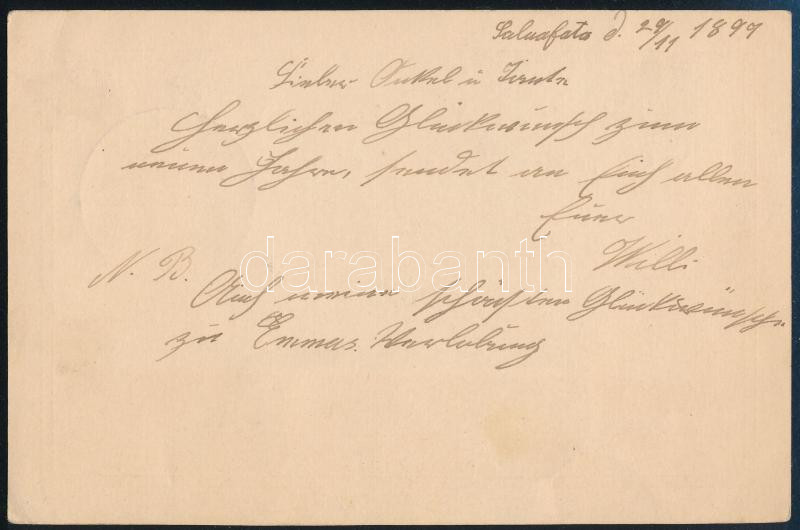 Saluafata d. 29/11 1899
Lieber Onkel u Tante
Herzlichen Glückwunsch zum
neuen Jahre, sendet an Euch allen
Euer
Willi
N. B.
Auch meine schönsten Glückwünsche
zu Emmas Verlobung
darabanth
www.darabanth.com